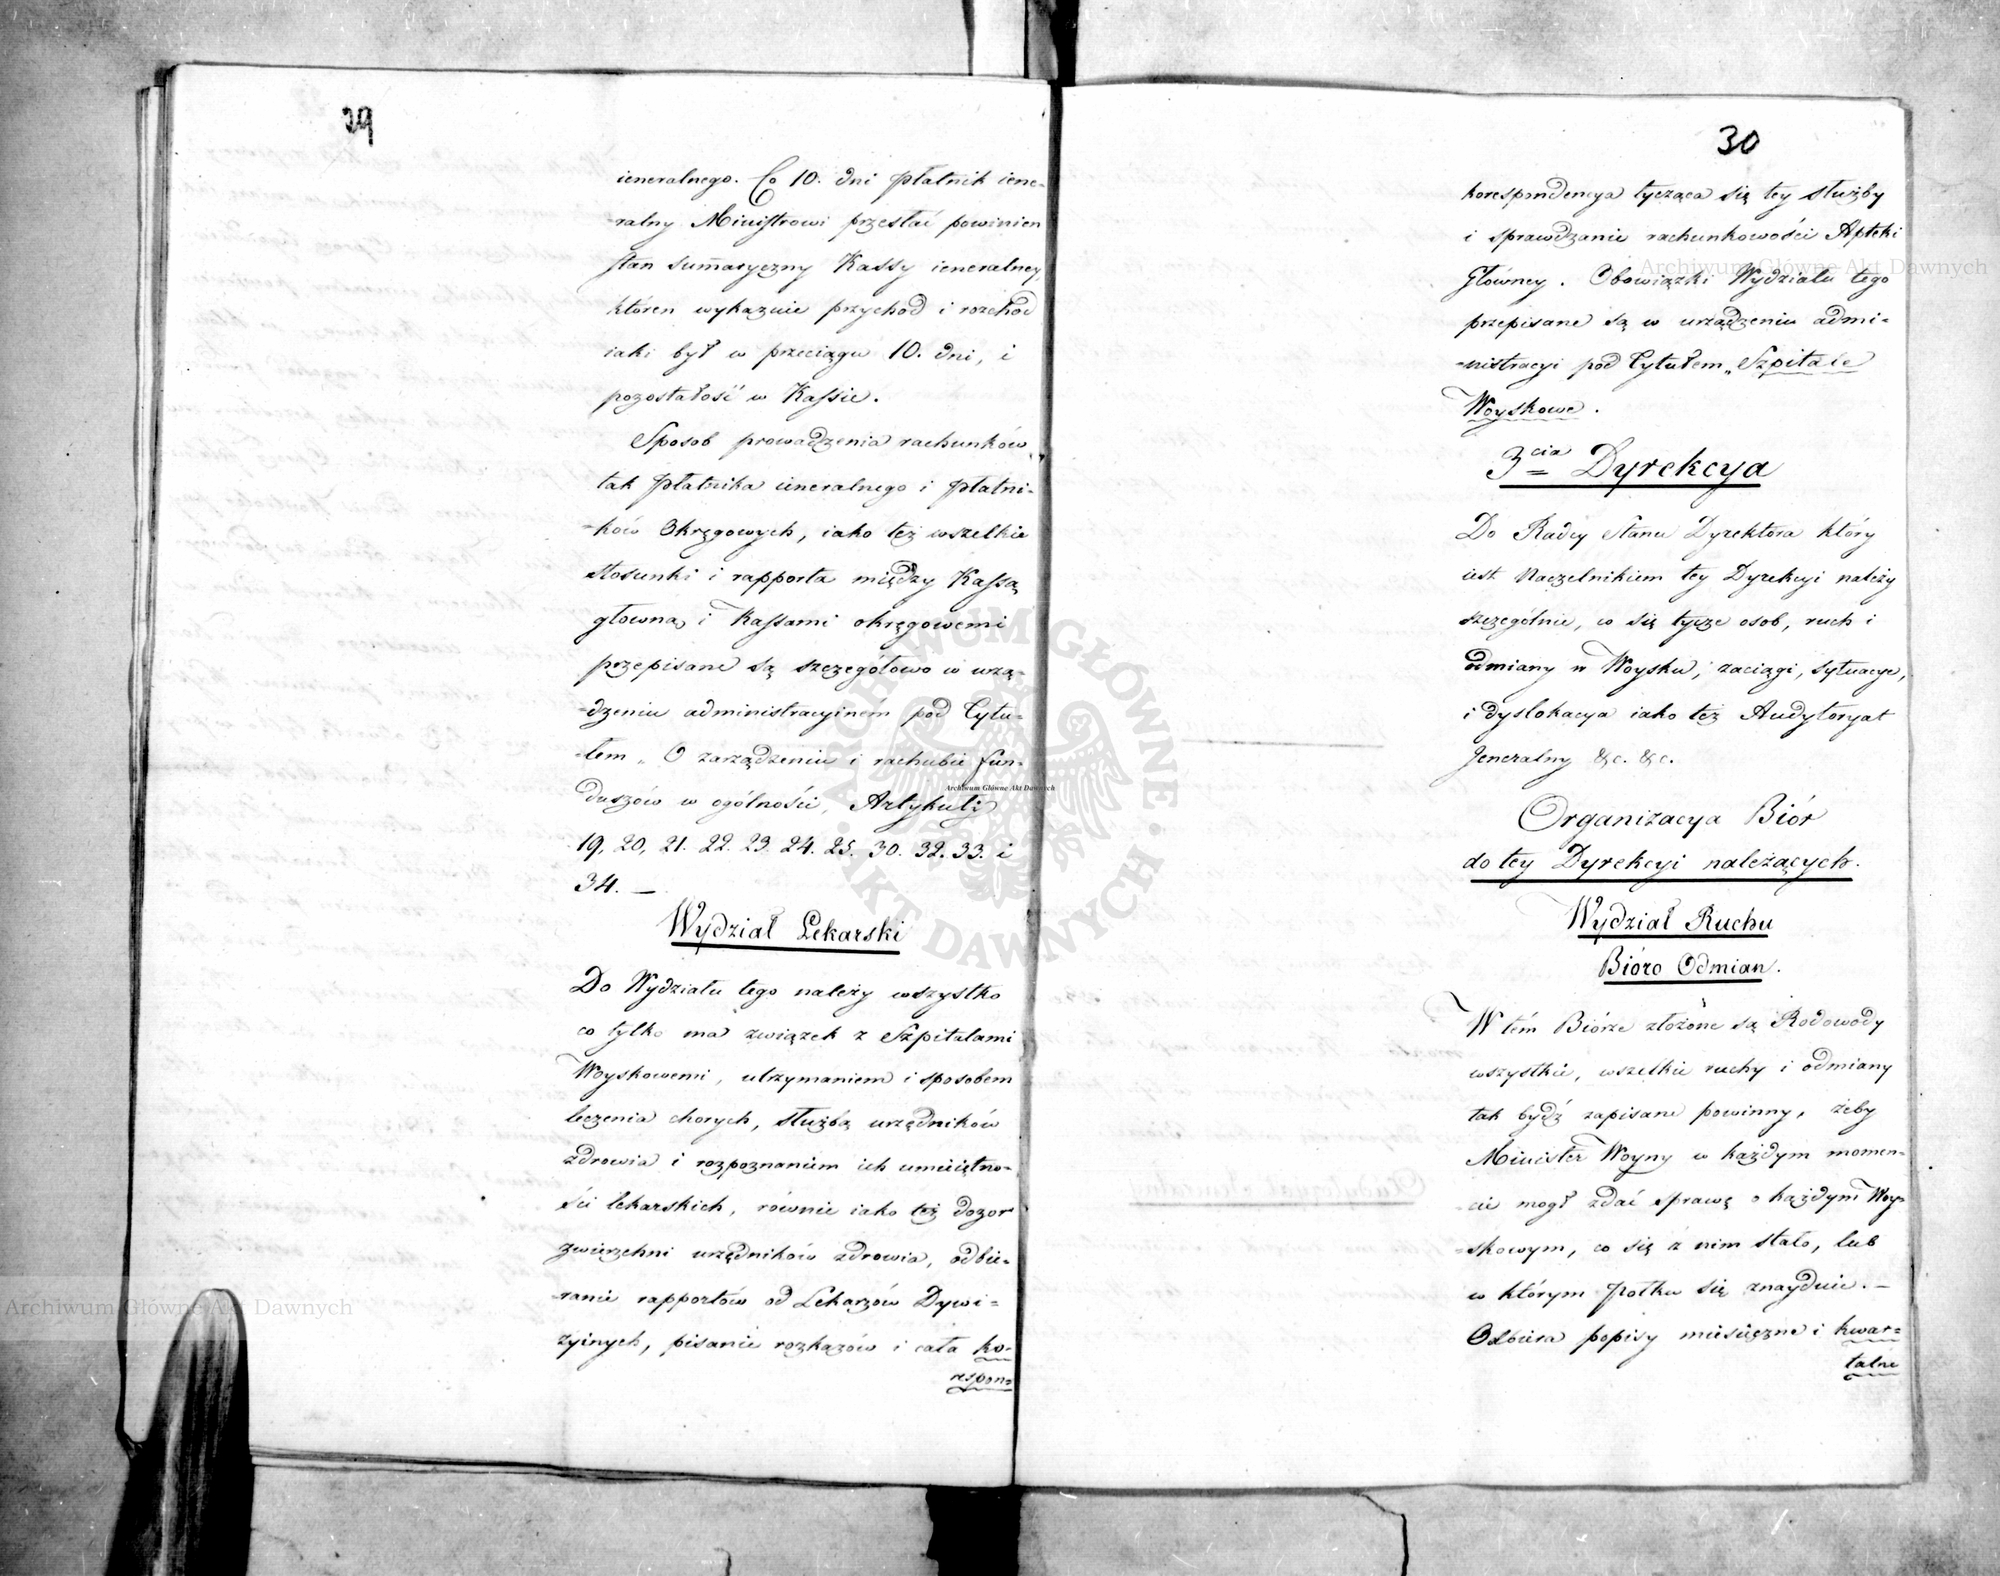 29
ieneralnego. Co 10. dni płatnik iene-
-ralny Ministrowi przesłać powinien
stan sumaryczny Kassy ieneralney,
któren wykazuie przychód i rozchód
iaki był w przeciągu 10. dni, i
pozostałość w Kassie.
Sposob prowadzenia rachunków,
tak płatnika ieneralnego i płatni-
-ków Okręgowych, iako też wszelkie
stosunki i rapporta między Kassą
głowną, i Kassami okręgowemi
przepisane są szczegółowo w urzą-
-dzeniu administracyinem pod Tytu-
-łem „ O zarządzeniu i rachubie fun-
duszów w ogólności, Artykuły
19, 20, 21. 22. 23. 24. 25. 30. 32. 33. i
34. —
Wydział Lekarski
Do Wydziału tego należy wszystko
co tylko ma związek z Szpitalami
Woyskowemi, utrzymaniem i sposobem
leczenia chorych, służbą urzędników
zdrowia i rozpoznaniem ich umieiętno-
ści lekarskich, równie iako też dozor
zwierzchni urzędników zdrowia, odbie-
-ranie rapportów od Lekarzów Dywi-
zyinych, pisanie rozkazów i cała ko-
respon-
30
korespondencya tycząca się tey służby
i sprawdzanie rachunkowości Apteki
Główney. Obowiązki Wydziału tego
przepisane są w urządzeniu admi-
-nistracyi pod Tytułem „Szpitale
Woyskowe.
3cia Dyrekcya
Do Radcy Stanu Dyrektora który
iest Naczelnikiem tey Dyrekcyi należy
szczególnie, co się tycze osob, ruch i
odmiany w Woysku, zaciągi, sytuacye,
i dyslokacya iako też Audytoryat
Jeneralny &c. &c.
Organizacya Biór
do tey Dyrekcyi należących.
Wydział Ruchu
Bióro Odmian.
W tém Biórze złożone są Rodowody
wszystkie, wszelkie ruchy i odmiany
tak bydź zapisane powinny, żeby
Minister Woyny w każdym momen-
-cie mogł zdać sprawę o każdym Woy-
-skowym, co się z nim stało, lub
w którym Półku się znayduie. —
Odbiera popisy miesięczne i kwar-
talne
Archiwum Główne Akt Dawnych
Archiwum Główne Akt Dawnych
Archiwum Główne Akt Dawnych
ARCHIWUM GŁÓWNE AKT DAWNYCH